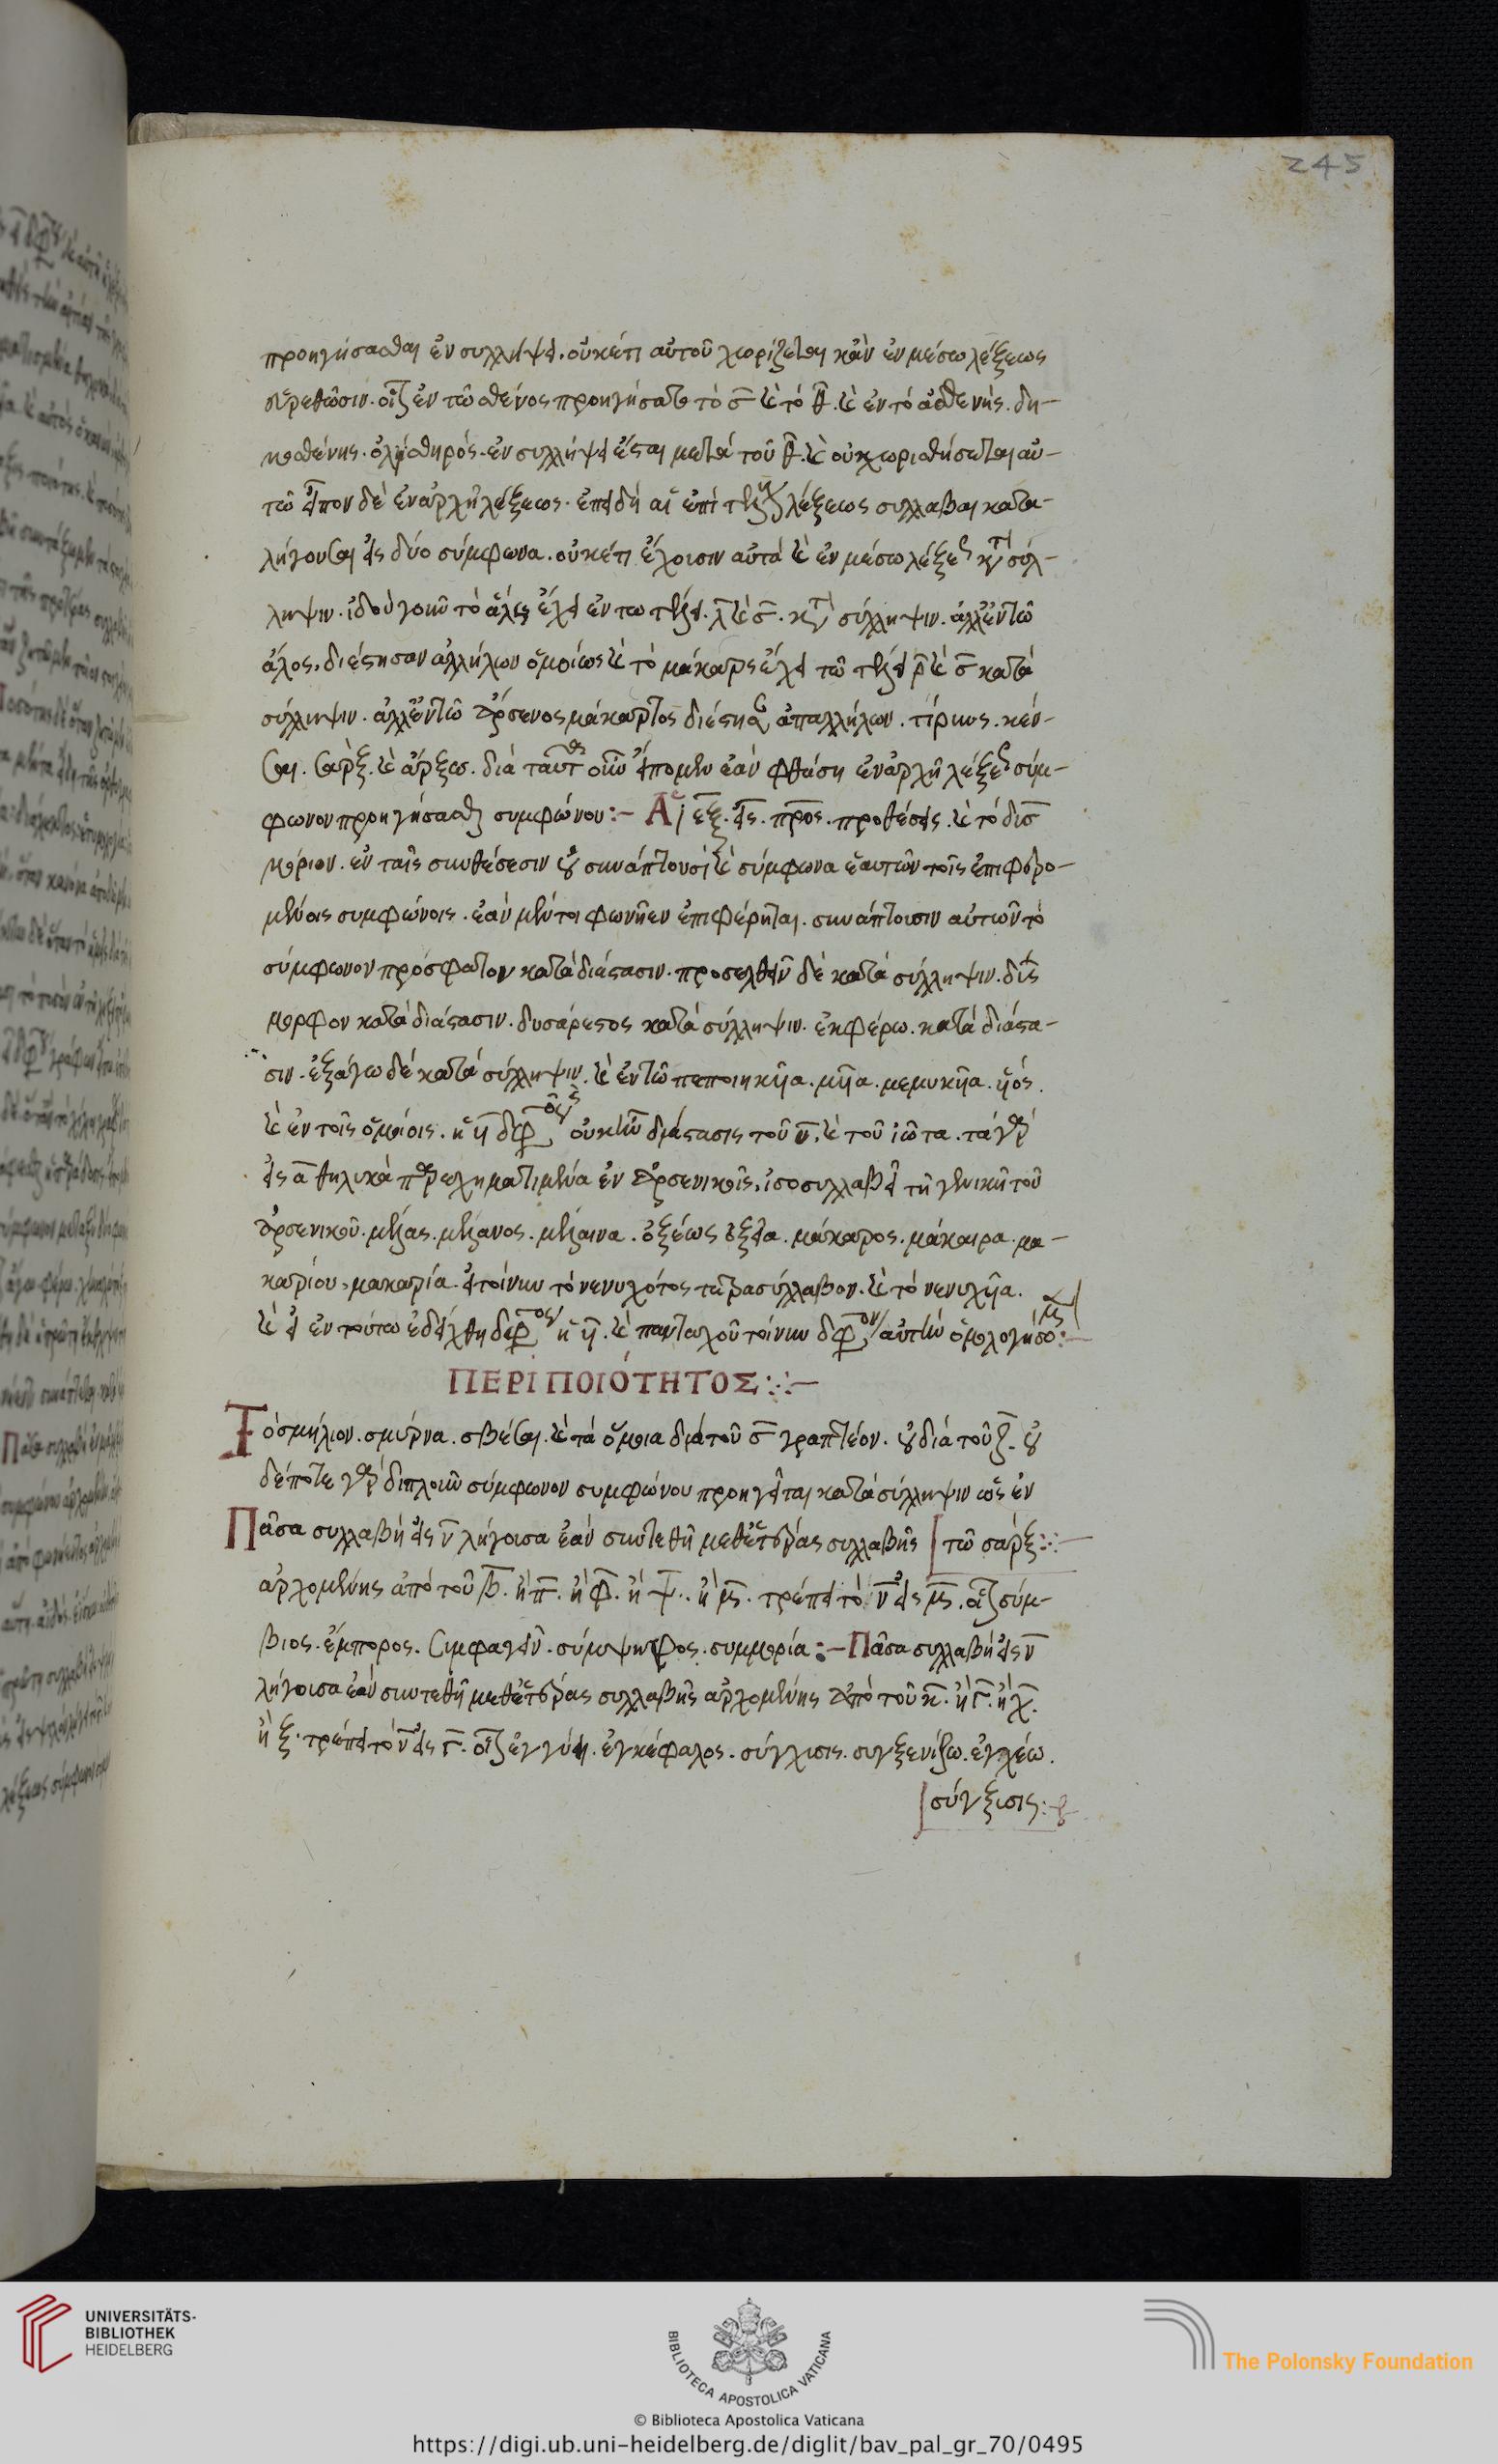 245
προηγήσασθαι ἐν συλλήψει. οὐκέτι αὐτοῦ χωρίζεται κἂν ἐν μέσω λέξεως
εὑρεθῶσιν. οἷον ἐν τῶ σθένος προηγήσατο τὸ σ̅ καὶ τὸ θ̅. καὶ ἐν τὸ ἀσθενής. δη-
μοσθένης. ὀλισθηρός. ἐν συλλήψει ἔσται μετὰ τοῦ θ̅. καὶ οὐ χωρισθήσεται αὐ-
τῶ εἶπον δὲ ἐν ἀρχῆ λέξεως. ἐπειδὴ αἱ ἐπὶ τέλους λέξεως συλλαβαι κατα-
λήγουσαι εἰς δύο σύμφωνα. οὐκέτι ἔχουσιν αὐτὰ καὶ ἐν μέσω λέξεως κατὰ σύλ-
ληψιν. ἰδοὺ γοῦν τὸ ἅλς ἔχει ἐν τω τέλει. λ̅ καὶ σ̅. κατὰ σύλληψιν. ἀλλ' ἐν τῶ
ἄλσος. διέστησαν ἀλλήλων ὁμοίως καὶ τὸ μάκαρς ἔχει τῶ τέλει ρ̅ καὶ σ̅ κατὰ
σύλληψιν. ἀλλ' ἐν τῶ ἄρσενος μάκαρτος διέστησαν ἀπαλλήλων. τίρυνς. κέν-
σαι. σάρξ. καὶ ἄρξω. διὰ ταῦτα οὖν εἴπομεν ἐὰν φθάση ἐν ἀρχῆ λέξεως σύμ-
φωνον προηγήσασθαι συμφώνου :- Αἱ ἐξ. εἰς. πρὸς. προθέσεις. καὶ τὸ δισ
μόριον. ἐν ταῖς συνθέσεσιν οὐ συνάπτουσι καὶ σύμφωνα ἑαυτῶν τοῖς ἐπιφερο-
μένοις συμφώνοις. ἐὰν μέντοι φωνῆεν ἐπιφέρηται. συνάπτουσιν αὐτῶν τὸ
σύμφωνον πρόσφατον κατὰ διάστασιν. προσελθεῖν δὲ κατὰ σύλληψιν. δύσ
μορφον κατὰ διάστασιν. δυσάρεστος κατὰ σύλληψιν. ἐκφέρω. κατὰ διάστα-
σιν. ἐξάγω δὲ κατὰ σύλληψιν. καὶ ἐν τῶ πεποιηκῆα. μῆα. μεμυκῆα. ὑός.
καὶ ἐν τοῖς ὁμοίοις. ἡ υι δίφθογγος οὐκ ἦν διάστασις τοῦ υ̅. καὶ τοῦ ἰῶτα. τὰ γὰρ
εἰς α̅ θηλυκὰ παρασχηματιμένα ἐν ἀρσενικοῖς. ἰσοσυλλαβεῖ τῆ γενικῆ τοῦ
ἀρσενικοῦ. μέλας. μέλανος. μέλαινα. ὀξέως ὀξεῖα. μάκαρος. μάκαιρα. μα-
καρίου. μακαρία. εἰ τοίνυν τὸ νενυχότος τετρασύλλαβον. καὶ τὸ νενυχῆα.
καὶ εἰ ἐν τούτω ἐδείχθη δίφθογγος ἡ υι. καὶ πανταχοῦ τοίνυν δίφθογγον αὐτὴν ὁμολογήσομεν :-
ΠΕΡῚ ΠΟΙΌΤΗΤΟΣ :·:—
Τὸ σμήλιον. σμύρνα. σβέσαι. καὶ τὰ ὅμοια διὰ τοῦ σ̅ γραπτέον. οὐ διὰ τοῦ ζ̅. οὐ
δέποτε γὰρ διπλοῦν σύμφωνον συμφώνου προηγεῖται κατὰ σύλληψιν ὡς ἐν
Πᾶσα συλλαβὴ εἰς ν̅ λήγουσα ἐὰν συντεθῆ μεθ' ἑτέρας συλλαβῆς [τῶ σάρξ :·:—
ἀρχομένης ἀπὸ τοῦ β̅. ἢ π̅. ἢ φ̅. ἢ ψ̅. ἢ μ̅. τρέπει τὸ ν̅ εἰς μ̅. οἷον σύμ-
βιος. ἔμπορος. συμφαγεῖν. σύμψηφος. συμμορία :- Πᾶσα συλλαβὴ εἰς ν̅
λήγουσα ἐὰν συντεθῆ μεθ' ἑτέρας συλλαβῆς ἀρχομένης ἀπὸ τοῦ κ̅. ἢ γ̅. ἢ χ̅.
ἢ ξ. τρέπει τὸ ν̅ εἰς γ̅. οἷον ἐγγύη. ἐγκέφαλος. σύγχισις. συγξενίζω. ἐγχέω.
[σύγξισις :-
UNIVERSITÄTS-
BIBLIOTHEK
HEIDELBERG
BIBLIOTECA APOSTOLICA VATICANA
© Biblioteca Apostolica Vaticana
The Polonsky Foundation
https://digi.ub.uni-heidelberg.de/diglit/bav_pal_gr_70/0495